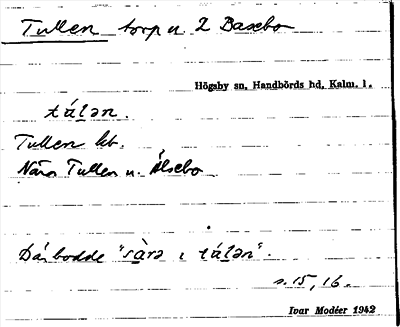 Tullen torp u. 2 Basebo
Högsby sn, Handbörds hd, Kalm. l.
tálǝn.
Tullen kb.
Nära Tullen u. Ålsebo
Där bodde "sàrǝ ɩ tálǝn".
s. 15, 16.
Ivar Modéer 1942